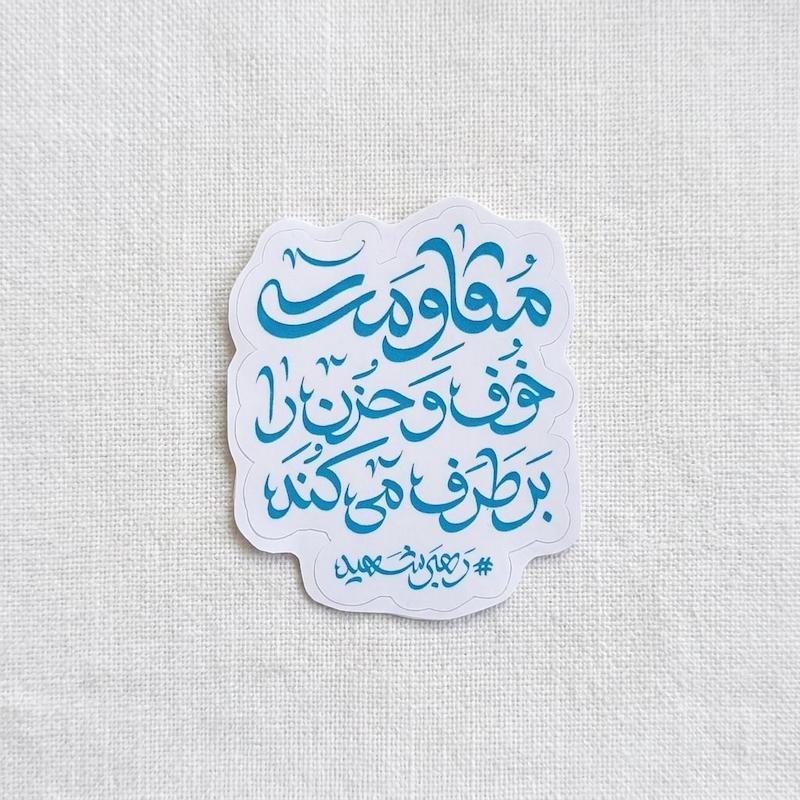 مُقاومت
خُوف وَ حُزن را
بَر طَرَف می کُندَ
#رَهبَر شَهید